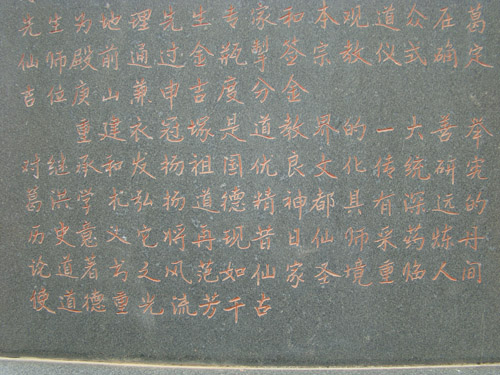 先生为地理先生专家和本观道众在葛
仙师殿前通过金瓶掣签宗教仪式确定
吉位庚山兼申吉度分金
重建衣冠塚是道教界的一大善举
对继承和发扬祖国优良文化传统研究
葛洪学术弘扬道德精神都具有深远的
历史意义它将再现昔日仙师采药炼丹
论道著书之风范如仙家圣境重临人间
使道德重光流芳千古